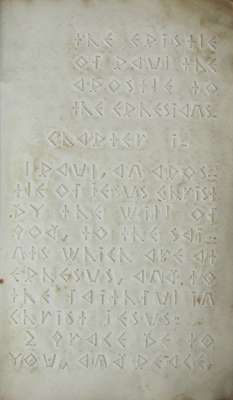 THE EPISTLE
OF PAUL THE
APOSTLE TO
THE EPHESIANS.
CHAPTER I.
1 PAUL, AN APOS-
TLE OF JESUS CHRIST
BY THE WILL OF
GOD, TO THE SAI-
NTS WHICH ARE AT
EPHESUS, AND TO
THE FAITHFUL IN
CHRIST JESUS:
2 GRACE BE TO
YOU, AND PEACE,